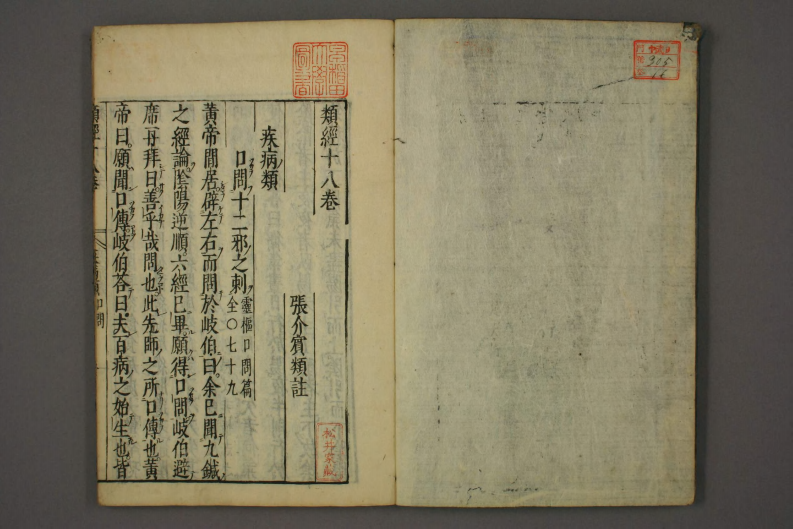 類經十八卷
張介賓類註
疾病類
口問十二邪之刺
靈樞口問篇
全〇七十九
黃帝閒居辟左右而問於岐伯曰余已聞九鍼
之經論陰陽逆順六經已畢願得口問岐伯避
席再拜曰善乎哉問也此先師之所口傳也黃
帝曰願聞口傳岐伯荅曰夫百病之始生也皆
類經十八卷
疾病類口問
305
16